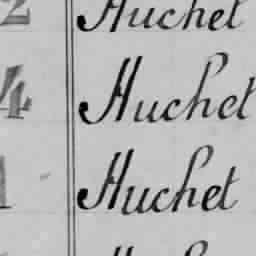 2 Huchet
4 Huchet
1 Huchet